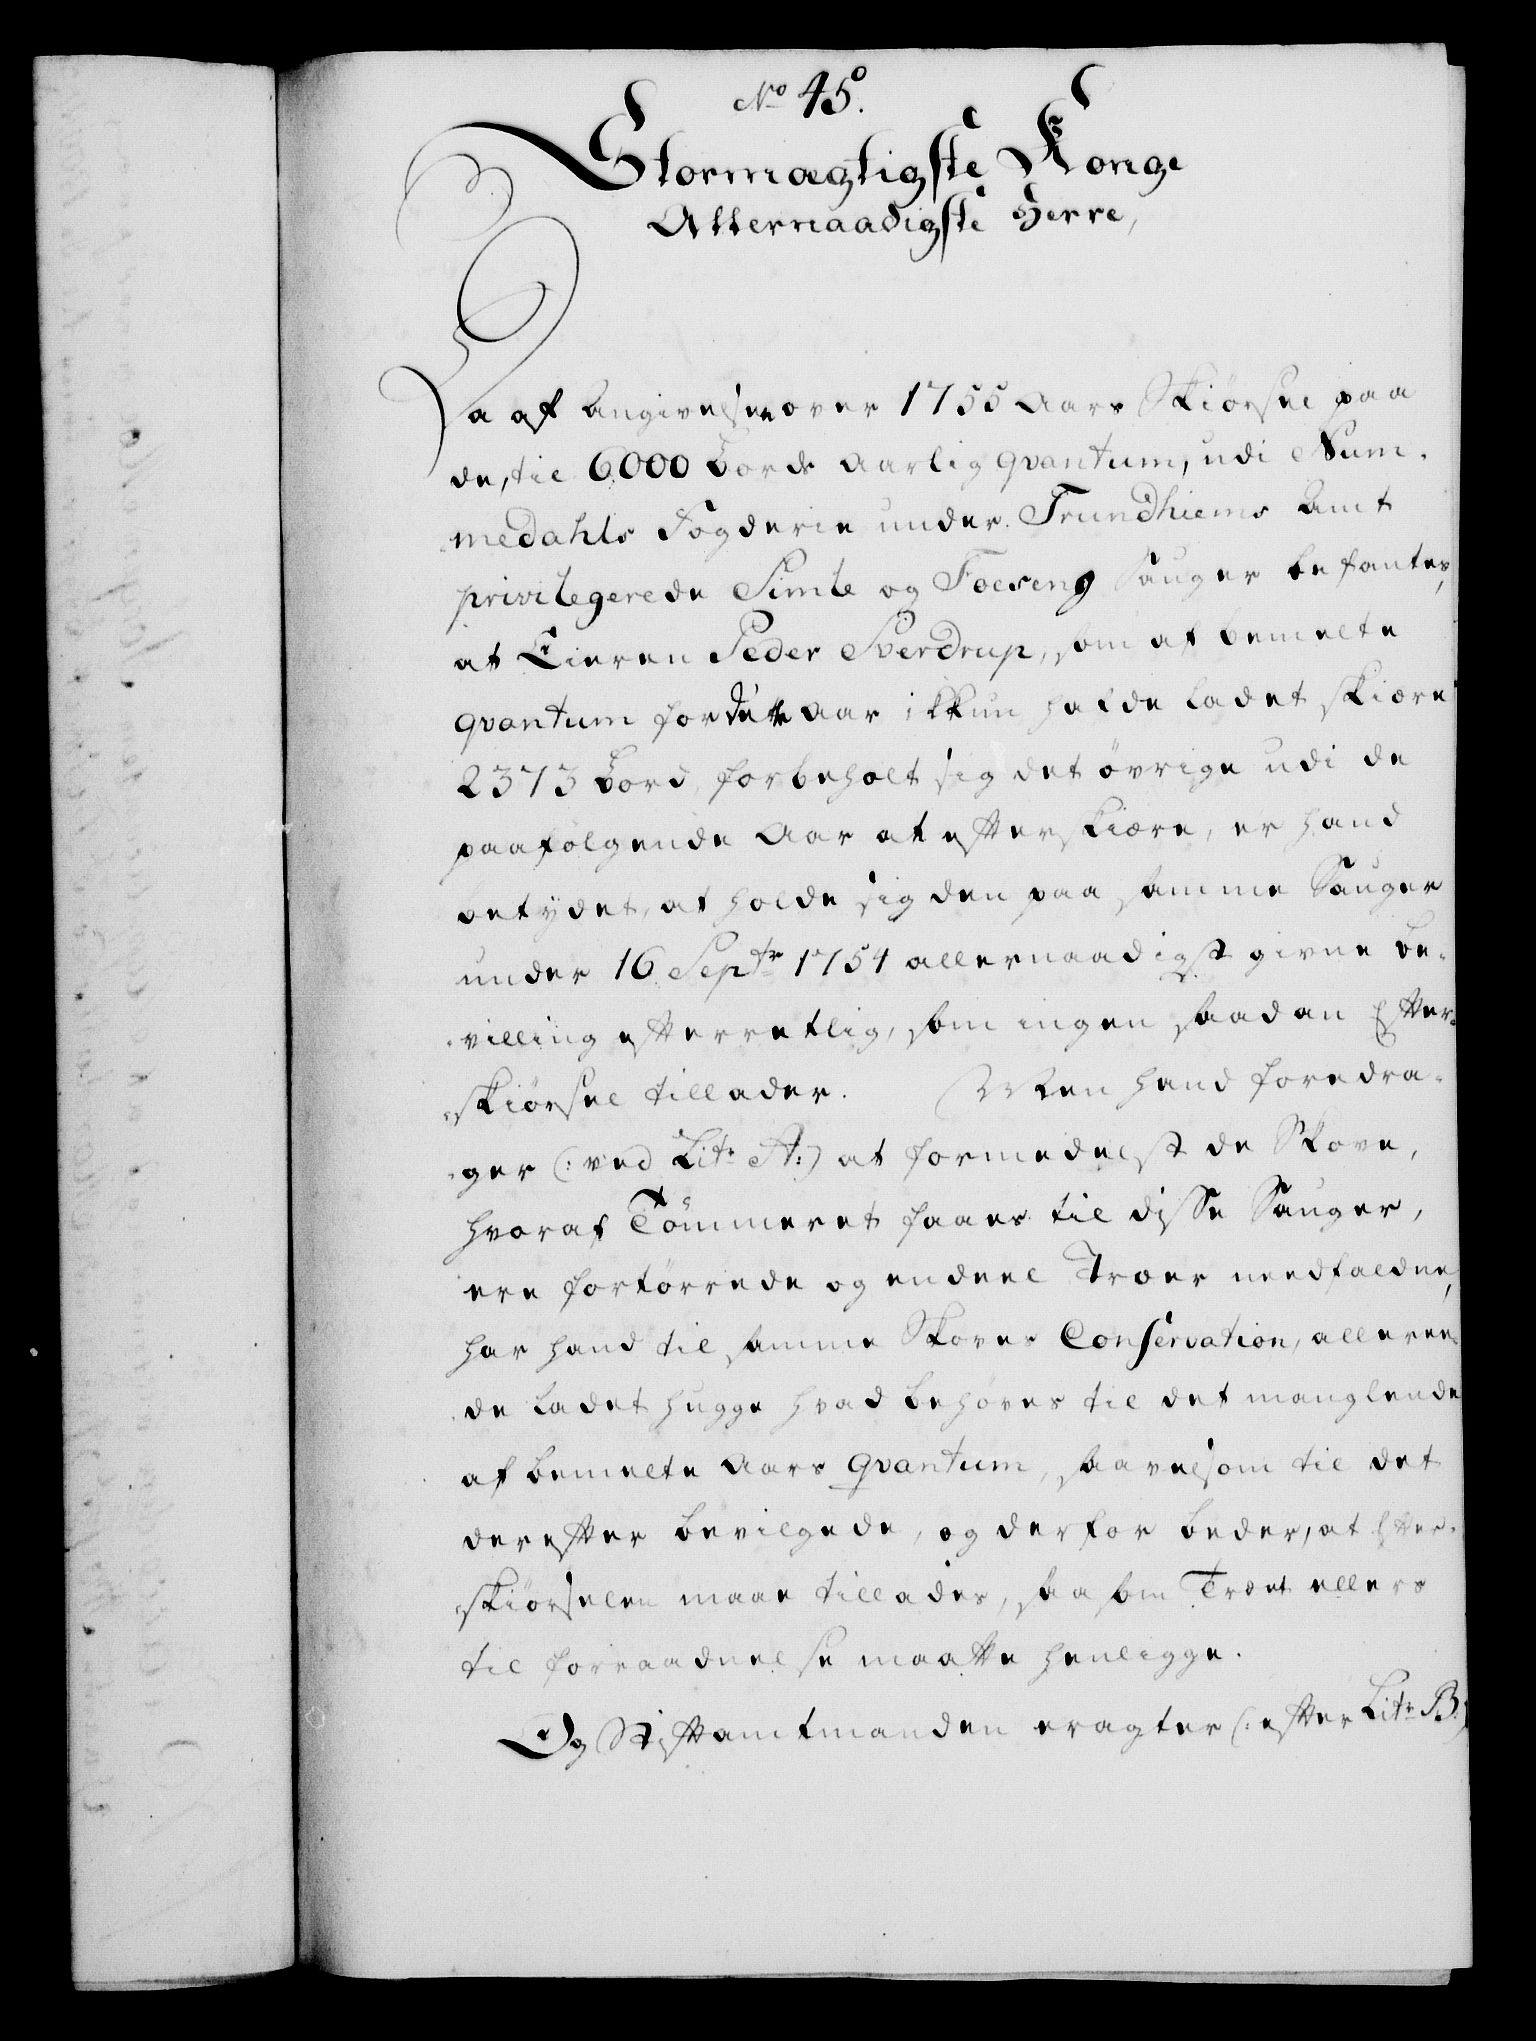 No 45.
Stormægtigste Konge
Allernaadigste Herre,
Da af Angivelsen over 1755 Aars Skiørsel paa
de, til 6000 Bords Aarlig qvantum, udi Num-
medahls Fogderie under Trundhiems Amt
privilegerede Simle og Foeseng Sauger befantes,
at Eieren Peder Sverdrup, som af bemelte
qvantum for dette Aar ikkun hafde ladet skiære
2373 Bord, forbeholt sig det övrige udi de
paafölgende Aar at efterskiære, er hand
betydet, at holde sig den paa samme Sauger
under 16 Septr 1754 allernaadigst givne Be-
villing efterretlig, som ingen saadan Efter-
skiørsel tillader. Men hand foredra-
ger (: ved Litr A:) at formedelst de Skove,
hvoraf Tömmeret faaes til disse Sauger,
ere fortörrede og endeel Træer needfaldne,
har hand til samme Skoves Conservation, alleree-
de ladet hugge hvad behöves til det manglende
af bemelte Aars qvantum, saavelsom til det
derefter bevilgede, og derfor beder, at Efter-
skiørselen maae tillades, saasom Træet ellers
til forraadnelse maatte henligge.
Og Stiftamtmanden eragter (: efter Litr B:)